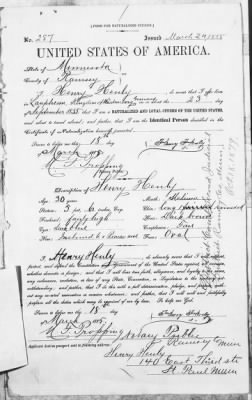 [FORM FOR NATURALIZED CITIZEN.]
No. 287 Issued March 24 1885
UNITED STATES OF AMERICA.
State of Minnesota
County of Ramsey
I, Henry Henly, do swear that I was born
in on or about the 23 day
of September 1835 that I am a NATURALIZED AND LOYAL CITIZEN OF THE UNITED STATES,
and about to travel abroad; and further that I am the Identical Person described in the
Certificate of Naturalization herewith presented.
Sworn to before me this 18 day
of March 1885 Henry Henly
Description of Henry Henly
Age: 30 years Mouth:
Stature: 5 feet, 6 inches, Eng. Chin:
Forehead: high Hair: Dark brown
Eyes: Complexion: Fair
Nose: Inclined to a Face: Oval
I, Henry Henly, do solemnly swear that I will support,
protect, and defend the Constitution and Government of the United States against all enemies,
whether domestic or foreign; and that I will bear true faith, allegiance, and loyalty to the same,
any ordinance, resolution, or law of any State, Convention, or Legislature to the contrary
notwithstanding; and further, that I do this with a full determination, pledge, and purpose,
without any mental reservation or evasion whatsoever; and further, that I will well and faithfully
perform all the duties which may be required of me by law. So help me God.
Sworn to before me this 18 day
of March 1885 Henry Henly
Notary Public
Ramsey Minn
Applicant desires passport sent to following address:
Henry Henly
140 East Third str
St. Paul Minn